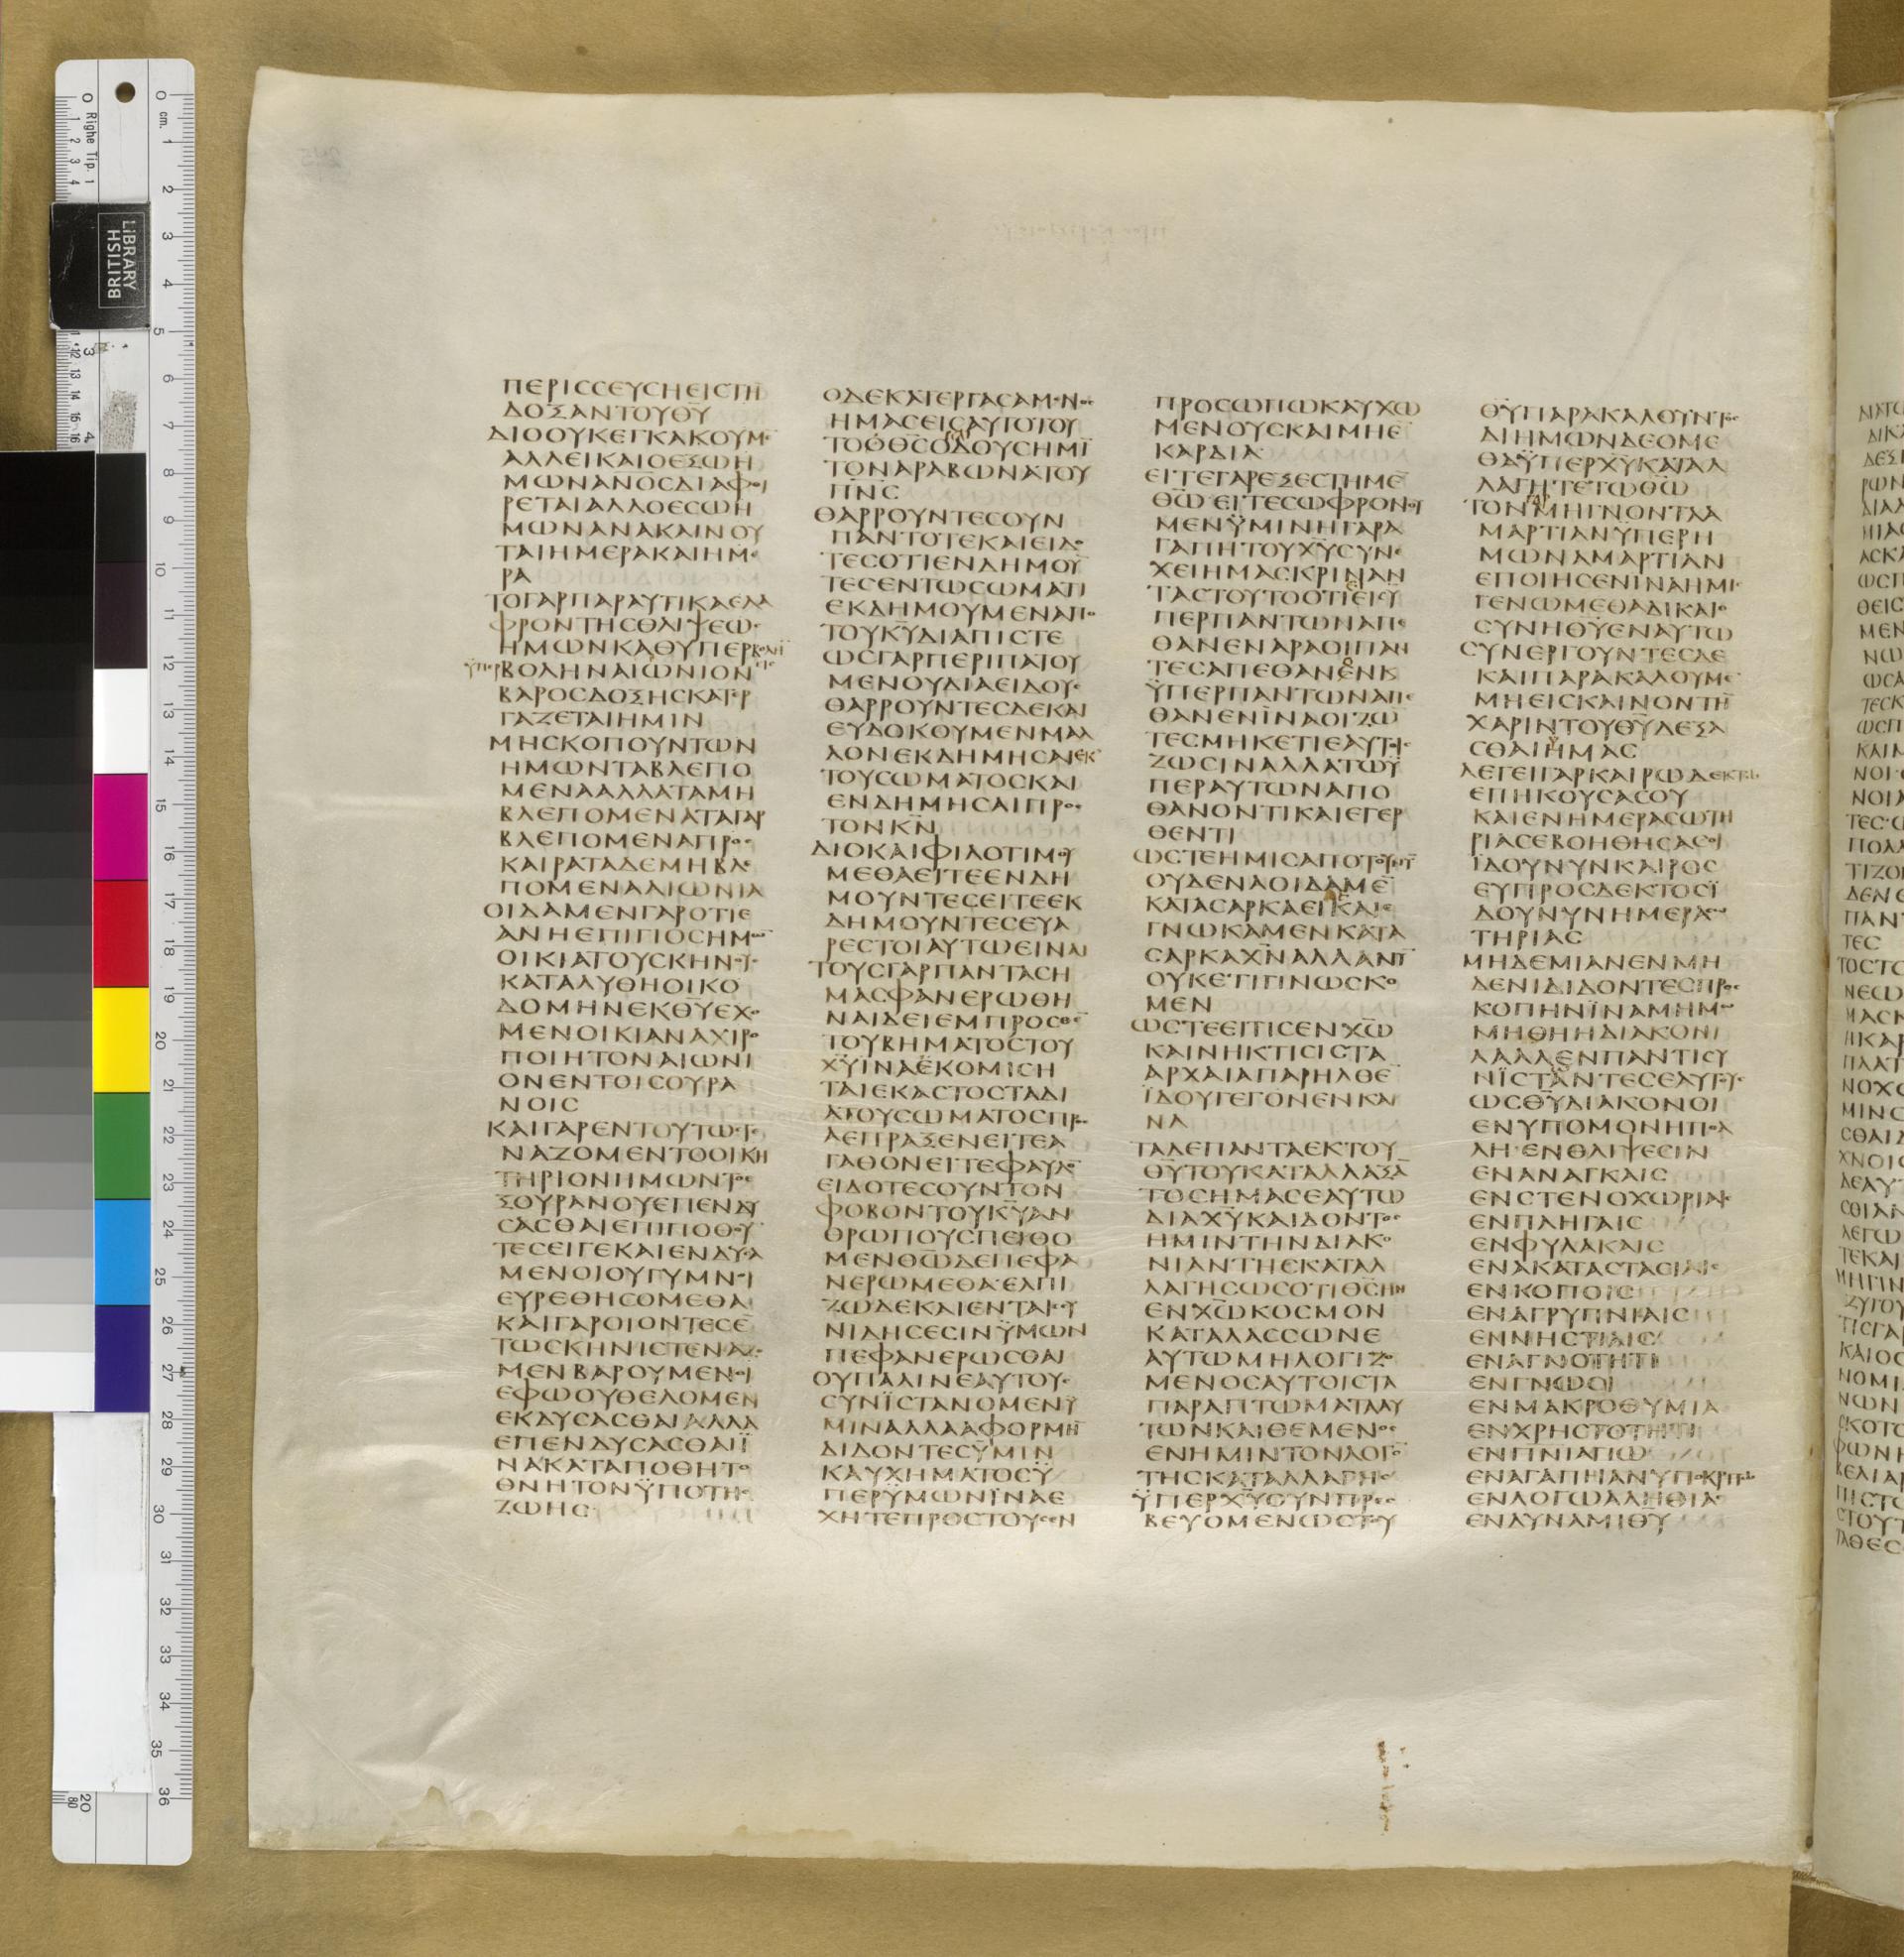 ΠΕΡΙϹϹΕΥϹΗΕΙϹΤΗ̅
ΔΟΞΑΝΤΟΥΘ̅Υ̅
ΔΙΟΟΥΚΕΓΚΑΚΟΥΜΕ̅
ΑΛΛΕΙΚΑΙΟΕΞΩΗ
ΜΩΝΑΝΟϹΔΙΑΦΘΙ
ΡΕΤΑΙΑΛΛΟΕϹΩΗ
ΜΩΝΑΝΑΚΑΙΝΟΥ
ΤΑΙΗΜΕΡΑΚΑΙΗΜΕ
ΡΑ
ΤΟΓΑΡΠΑΡΑΥΤΙΚΑΕΛΑ
ΦΡΟΝΤΗϹΘΛΙΨΕΩϹ
ΗΜΩΝΚΑΘΥΠΕΡΒΟΛΗ̅
ΒΟΛΗΝΑΙΩΝΙΟΝ
ΒΑΡΟϹΔΟΞΗϹΚΑΤΕΡ
ΓΑΖΕΤΑΙΗΜΙΝ
ΜΗϹΚΟΠΟΥΝΤΩΝ
ΗΜΩΝΤΑΒΛΕΠΟ
ΜΕΝΑΑΛΛΑΤΑΜΗ
ΒΛΕΠΟΜΕΝΑΤΑΓΑΡ
ΒΛΕΠΟΜΕΝΑΠΡΟϹ
ΚΑΙΡΑΤΑΔΕΜΗΒΛΕ
ΠΟΜΕΝΑΑΙΩΝΙΑ
ΟΙΔΑΜΕΝΓΑΡΟΤΙΕ
ΑΝΗΕΠΙΓΙΟϹΗΜΩ̅
ΟΙΚΙΑΤΟΥϹΚΗΝΟΥϹ
ΚΑΤΑΛΥΘΗΟΙΚΟ
ΔΟΜΗΝΕΚΘ̅Υ̅ΕΧΟ
ΜΕΝΟΙΚΙΑΝΑΧΙΡΟ
ΠΟΙΗΤΟΝΑΙΩΝΙ
ΟΝΕΝΤΟΙϹΟΥΡΑ
ΝΟΙϹ
ΚΑΙΓΑΡΕΝΤΟΥΤΩϹΤΕ
ΝΑΖΟΜΕΝΤΟΟΙΚΗ
ΤΗΡΙΟΝΗΜΩΝΤΟΕ
ΞΟΥΡΑΝΟΥΕΠΕΝΔΥ
ϹΑϹΘΑΙΕΠΙΠΟΘΟΥ̅
ΤΕϹΕΙΓΕΚΑΙΕΝΔΥϹΑ
ΜΕΝΟΙΟΥΓΥΜΝΟΙ
ΕΥΡΕΘΗϹΟΜΕΘΑ
ΚΑΙΓΑΡΟΙΟΝΤΕϹΕ̅
ΤΩϹΚΗΝΙϹΤΕΝΑΖΟ
ΜΕΝΒΑΡΟΥΜΕΝΟΙ
ΕΦΩΟΥΘΕΛΟΜΕΝ
ΕΚΔΥϹΑϹΘΑΙΑΛΛΑ
ΕΠΕΝΔΥϹΑϹΘΑΙΪ
ΝΑΚΑΤΑΠΟΘΗΤΟ
ΘΝΗΤΟΝΫΠΟΤΗϹ
ΖΩΗϹ
ΟΔΕΚΑΤΕΡΓΑϹΑΜΕΝΟϹ
ΗΜΑϹΕΙϹΑΥΤΟΤΟΥ
ΤΟΟΘ̅Ϲ̅ΟΔΟΥϹΗΜΙ̅
ΤΟΝΑΡΑΒΩΝΑΤΟΥ
Π̅Ν̅Ϲ̅
ΘΑΡΡΟΥΝΤΕϹΟΥΝ
ΠΑΝΤΟΤΕΚΑΙΕΙΔΟ
ΤΕϹΟΤΙΕΝΔΗΜΟΥ̅
ΤΕϹΕΝΤΩϹΩΜΑΤΙ
ΕΚΔΗΜΟΥΜΕΝΑΠΟ
ΤΟΥΚ̅Υ̅ΔΙΑΠΙϹΤΕ
ΩϹΓΑΡΠΕΡΙΠΑΤΟΥ
ΜΕΝΟΥΔΙΑΕΙΔΟΥϹ
ΘΑΡΡΟΥΝΤΕϹΔΕΚΑΙ
ΕΥΔΟΚΟΥΜΕΝΜΑΛ
ΛΟΝΕΚΔΗΜΗϹΑΙΕΚ
ΤΟΥϹΩΜΑΤΟϹΚΑΙ
ΕΝΔΗΜΗϹΑΙΠΡΟϹ
ΤΟΝΚ̅Ν̅
ΔΙΟΚΑΙΦΙΛΟΤΙΜΟΥ
ΜΕΘΑΕΙΤΕΕΝΔΗ
ΜΟΥΝΤΕϹΕΙΤΕΕΚ
ΔΗΜΟΥΝΤΕϹΕΥΑ
ΡΕϹΤΟΙΑΥΤΩΕΙΝΑΙ
ΤΟΥϹΓΑΡΠΑΝΤΑϹΗ
ΜΑϹΦΑΝΕΡΩΘΗ
ΝΑΙΔΕΙΕΜΠΡΟϹΘΕ̅
ΤΟΥΒΗΜΑΤΟϹΤΟΥ
Χ̅Υ̅ΪΝΑΕΚΟΜΙϹΗ
ΤΑΙΕΚΑϹΤΟϹΤΑΔΙ
ΑΤΟΥϹΩΜΑΤΟϹΠΡΟϹ
ΑΕΠΡΑΞΕΝΕΙΤΕΑ
ΓΑΘΟΝΕΙΤΕΦΑΥΛΟ̅
ΕΙΔΟΤΕϹΟΥΝΤΟΝ
ΦΟΒΟΝΤΟΥΚ̅Υ̅ΑΝ
ΘΡΩΠΟΥϹΠΕΙΘΟ
ΜΕΝΘ̅Ω̅ΔΕΠΕΦΑ
ΝΕΡΩΜΕΘΑΕΛΠΙ
ΖΩΔΕΚΑΙΕΝΤΑΙϹϹΥ
ΝΙΔΗϹΕϹΙΝΫΜΩΝ
ΠΕΦΑΝΕΡΩϹΘΑΙ
ΟΥΠΑΛΙΝΕΑΥΤΟΥϹ
ϹΥΝΪϹΤΑΝΟΜΕΝΫ
ΜΙΝΑΛΛΑΑΦΟΡΜΗ̅
ΔΙΔΟΝΤΕϹΫΜΙΝ
ΚΑΥΧΗΜΑΤΟϹΫ
ΠΕΡΫΜΩΝΪΝΑΕ
ΧΗΤΕΠΡΟϹΤΟΥϹΕΝ
ΠΡΟϹΩΠΩΚΑΥΧΩ
ΜΕΝΟΥϹΚΑΙΜΗΕ̅
ΚΑΡΔΙΑ
ΕΙΤΕΓΑΡΕΞΕϹΤΗΜΕ̅
Θ̅Ω̅ΕΙΤΕϹΩΦΡΟΝΟΥ
ΜΕΝΫΜΙΝΗΓΑΡΑ
ΓΑΠΗΤΟΥΧ̅Υ̅ϹΥΝΕ
ΧΕΙΗΜΑϹΚΡΙΝΑΝ
ΤΑϹΤΟΥΤΟΟΤΙΕΙϹΫ
ΠΕΡΠΑΝΤΩΝΑΠΕ
ΘΑΝΕΝΑΡΑΟΙΠΑΝ
ΤΕϹΑΠΕΘΑΝΕΝΚ
ΫΠΕΡΠΑΝΤΩΝΑΠΕ
ΘΑΝΕΝΪΝΑΟΙΖΩ
ΤΕϹΜΗΚΕΤΙΕΑΥΤΟΙϹ
ΖΩϹΙΝΑΛΛΑΤΩΫ
ΠΕΡΑΥΤΩΝΑΠΟ
ΘΑΝΟΝΤΙΚΑΙΕΓΕΡ
ΘΕΝΤΙ
ΩϹΤΕΗΜΙϹΑΠΟΤΟΥΝΥ̅
ΟΥΔΕΝΑΟΙΔΑΜΕ̅
ΚΑΤΑϹΑΡΚΑΕΙΚΑΙΕ
ΓΝΩΚΑΜΕΝΚΑΤΑ
ϹΑΡΚΑΧ̅Ν̅ΑΛΛΑΝΥ̅
ΟΥΚΕΤΙΓΙΝΩϹΚΟ
ΜΕΝ
ΩϹΤΕΕΙΤΙϹΕΝΧ̅Ω̅
ΚΑΙΝΗΚΤΙϹΙϹΤΑ
ΑΡΧΑΙΑΠΑΡΗΛΘΕ̅
ΪΔΟΥΓΕΓΟΝΕΝΚΑΙ
ΝΑ
ΤΑΔΕΠΑΝΤΑΕΚΤΟΥ
Θ̅Υ̅ΤΟΥΚΑΤΑΛΛΑΞΑ̅
ΤΟϹΗΜΑϹΕΑΥΤΩ
ΔΙΑΧ̅Υ̅ΚΑΙΔΟΝΤΟϹ
ΗΜΙΝΤΗΝΔΙΑΚΟ
ΝΙΑΝΤΗϹΚΑΤΑΛ
ΛΑΓΗϹΩϹΟΤΙΘ̅Ϲ̅ΗΝ
ΕΝΧ̅Ω̅ΚΟϹΜΟΝ
ΚΑΤΑΛΑϹϹΩΝΕ
ΑΥΤΩΜΗΛΟΓΙΖΟ
ΜΕΝΟϹΑΥΤΟΙϹΤΑ
ΠΑΡΑΠΤΩΜΑΤΑΑΥ
ΤΩΝΚΑΙΘΕΜΕΝΟϹ
ΕΝΗΜΙΝΤΟΝΛΟΓΟ̅
ΤΗϹΚΑΤΑΛΛΑΓΗϹ
ΫΠΕΡΧ̅Υ̅ΟΥΝΠΡΕϹ
ΒΕΥΟΜΕΝΩϹΤΟΥ
Θ̅Υ̅ΠΑΡΑΚΑΛΟΥΝΤΟϹ
ΔΙΗΜΩΝΔΕΟΜΕ
ΘΑΫΠΕΡΧ̅Υ̅ΚΑΤΑΛ
ΛΑΓΗΤΕΤΩΘ̅Ω̅
ΤΟΝΜΗΓΝΟΝΤΑΑ
ΜΑΡΤΙΑΝΫΠΕΡΗ
ΜΩΝΑΜΑΡΤΙΑΝ
ΕΠΟΙΗϹΕΝΪΝΑΗΜΙϹ
ΓΕΝΩΜΕΘΑΔΙΚΑΙΟ
ϹΥΝΗΘ̅Υ̅ΕΝΑΥΤΩ
ϹΥΝΕΡΓΟΥΝΤΕϹΔΕ
ΚΑΙΠΑΡΑΚΑΛΟΥΜΕ̅
ΜΗΕΙϹΚΑΙΝΟΝΤΗ̅
ΧΑΡΙΝΤΟΥΘ̅Υ̅ΔΕΞΑ
ϹΘΑΙΗΜΑϹ
ΛΕΓΕΙΓΑΡΚΑΙΡΩΔΕΚΤΩ
ΕΠΗΚΟΥϹΑϹΟΥ
ΚΑΙΕΝΗΜΕΡΑϹΩΤΗ
ΡΙΑϹΕΒΟΗΘΗϹΑϹΟΙ
ΪΔΟΥΝΥΝΚΑΙΡΟϹ
ΕΥΠΡΟϹΔΕΚΤΟϹΪ
ΔΟΥΝΥΝΗΜΕΡΑϹΩ
ΤΗΡΙΑϹ
ΜΗΔΕΜΙΑΝΕΝΜΗ
ΔΕΝΙΔΙΔΟΝΤΕϹΠΡΟϹ
ΚΟΠΗΝΪΝΑΜΗΜΩ
ΜΗΘΗΗΔΙΑΚΟΝΙ
ΑΑΛΛΕΝΠΑΝΤΙϹΥ
ΝΪϹΤΑΝΤΕϹΕΑΥΤΟΥϹ
ΩϹΘ̅Υ̅ΔΙΑΚΟΝΟΙ
ΕΝΥΠΟΜΟΝΗΠΟΛ
ΛΗΕΝΘΛΙΨΕϹΙΝ
ΕΝΑΝΑΓΚΑΙϹ
ΕΝϹΤΕΝΟΧΩΡΙΑΙϹ
ΕΝΠΛΗΓΑΙϹ
ΕΝΦΥΛΑΚΑΙϹ
ΕΝΑΚΑΤΑϹΤΑϹΙΑΙϹ
ΕΝΚΟΠΟΙϹ
ΕΝΑΓΡΥΠΝΙΑΙϹ
ΕΝΝΗϹΤΙΑΙϹ
ΕΝΑΓΝΟΤΗΤΙ
ΕΝΓΝΩϹΙ
ΕΝΜΑΚΡΟΘΥΜΙΑ
ΕΝΧΡΗϹΤΟΤΗΤΙ
ΕΝΠ̅Ν̅Ι̅ΑΓΙΩ
ΕΝΑΓΑΠΗΑΝΥΠΟΚΡΙΤΩ
ΕΝΛΟΓΩΑΛΗΘΙΑϹ
ΕΝΔΥΝΑΜΙΘ̅Υ̅